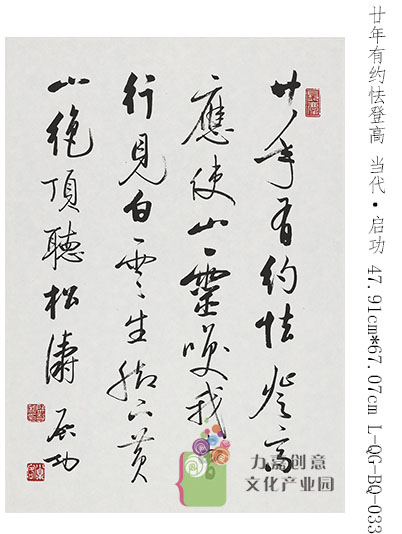 廿年有約怯登高
應使山靈咲我
行見白雲生腳下黄
山絶頂聽松濤 启功
廿年有约怯登高 当代·启功 47.91cm*67.07cm L-QG-BQ-033
力高创意
文化产业园